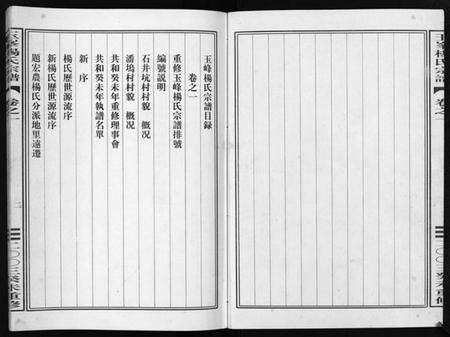 玉峰楊氏宗譜
卷之一
二〇〇三癸未重修
玉峰楊氏宗譜目録
卷之一
重修玉峰楊氏宗譜排號
編號説明
石井坑村村貌　概況
潘塢村村貌　概況
共和癸未年重修理事會
共和癸未年執譜名單
新　序
楊氏歷世源流序
新楊氏歷世源流序
題宏農楊氏分派地里遠遷
楊氏宗譜
卷之一
二
二〇〇三癸未重修